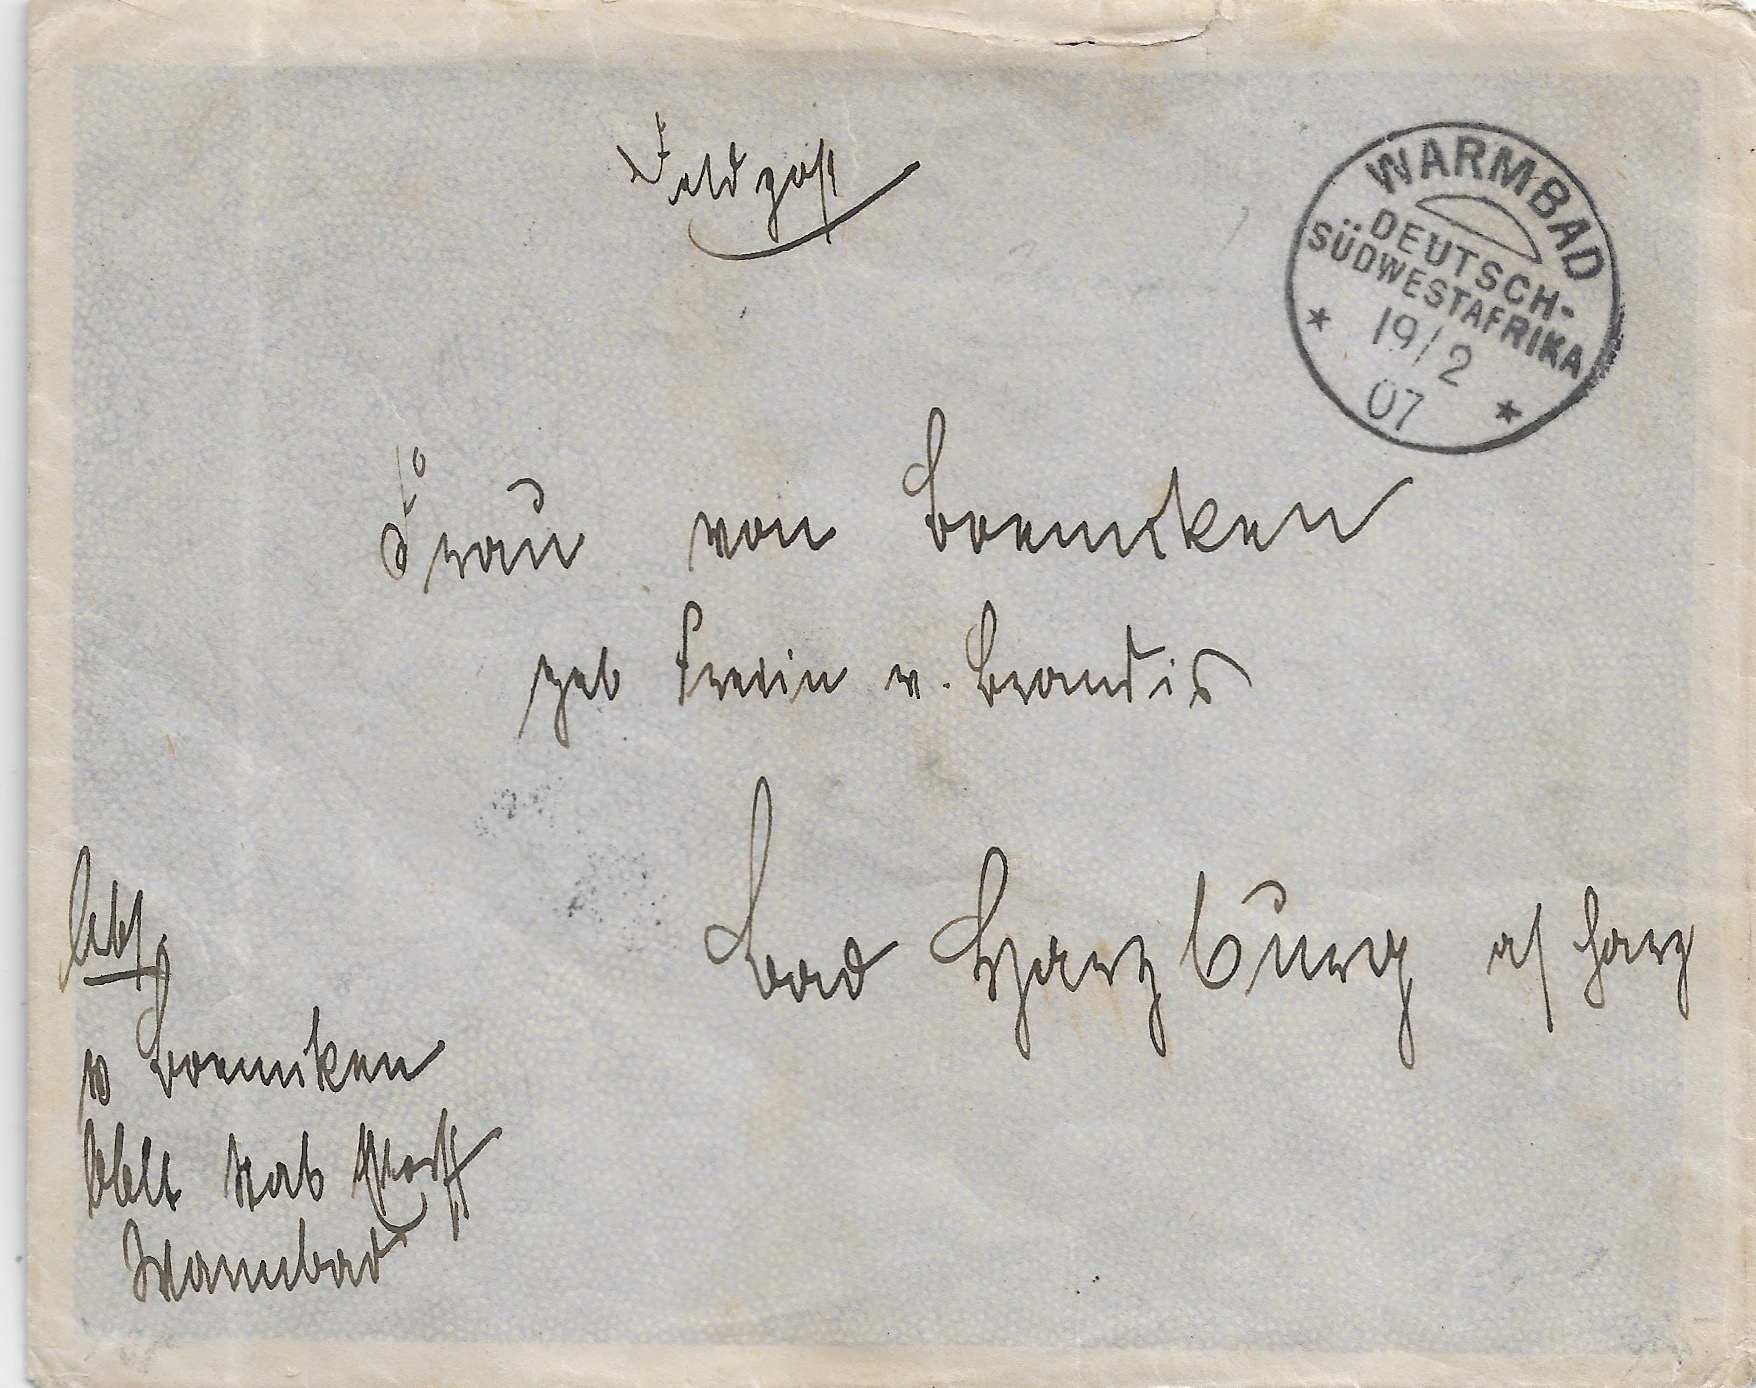 Feldpost
WARMBAD
DEUTSCH-
SÜDWESTAFRIKA
19/2
07
Frau von Boemcken
geb Freiin v. Brandis
Bad Harzburg a/ Harz
Abs.
v Boemcken
Oblt Stab
Warmbad